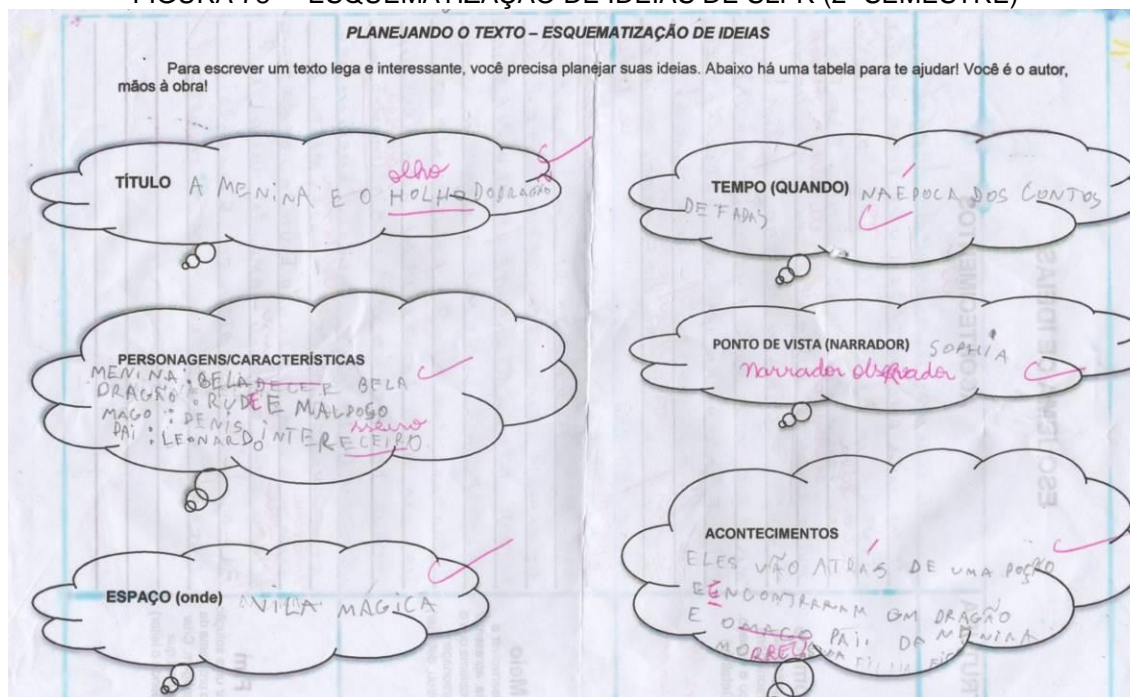 PLANEJANDO O TEXTO – ESQUEMATIZAÇÃO DE IDEIAS
Para escrever um texto lega e interessante, você precisa planejar suas ideias. Abaixo há uma tabela para te ajudar! Você é o autor,
mãos à obra!
olho
TÍTULO A MENINA E O HOLHO DO DRAGÃO
PERSONAGENS/CARACTERÍSTICAS
MENINA: BELA BELA
DRAGÃO: RUDE E MALDOSO
MAGO: DENIS
sseiro
PAI: LEONARDO, INTERECEIRO
ESPAÇO (onde) VILA MÁGICA
TEMPO (QUANDO) NA EPOCA DOS CONTOS
DE FADAS
PONTO DE VISTA (NARRADOR) SOPHIA
narrador observador
ACONTECIMENTOS
ELES VÃO ATRÁS DE UMA POÇÃO
E ENCONTRARAM OM DRAGÃO
E O MAGO PAI DA MENINA
MORREU